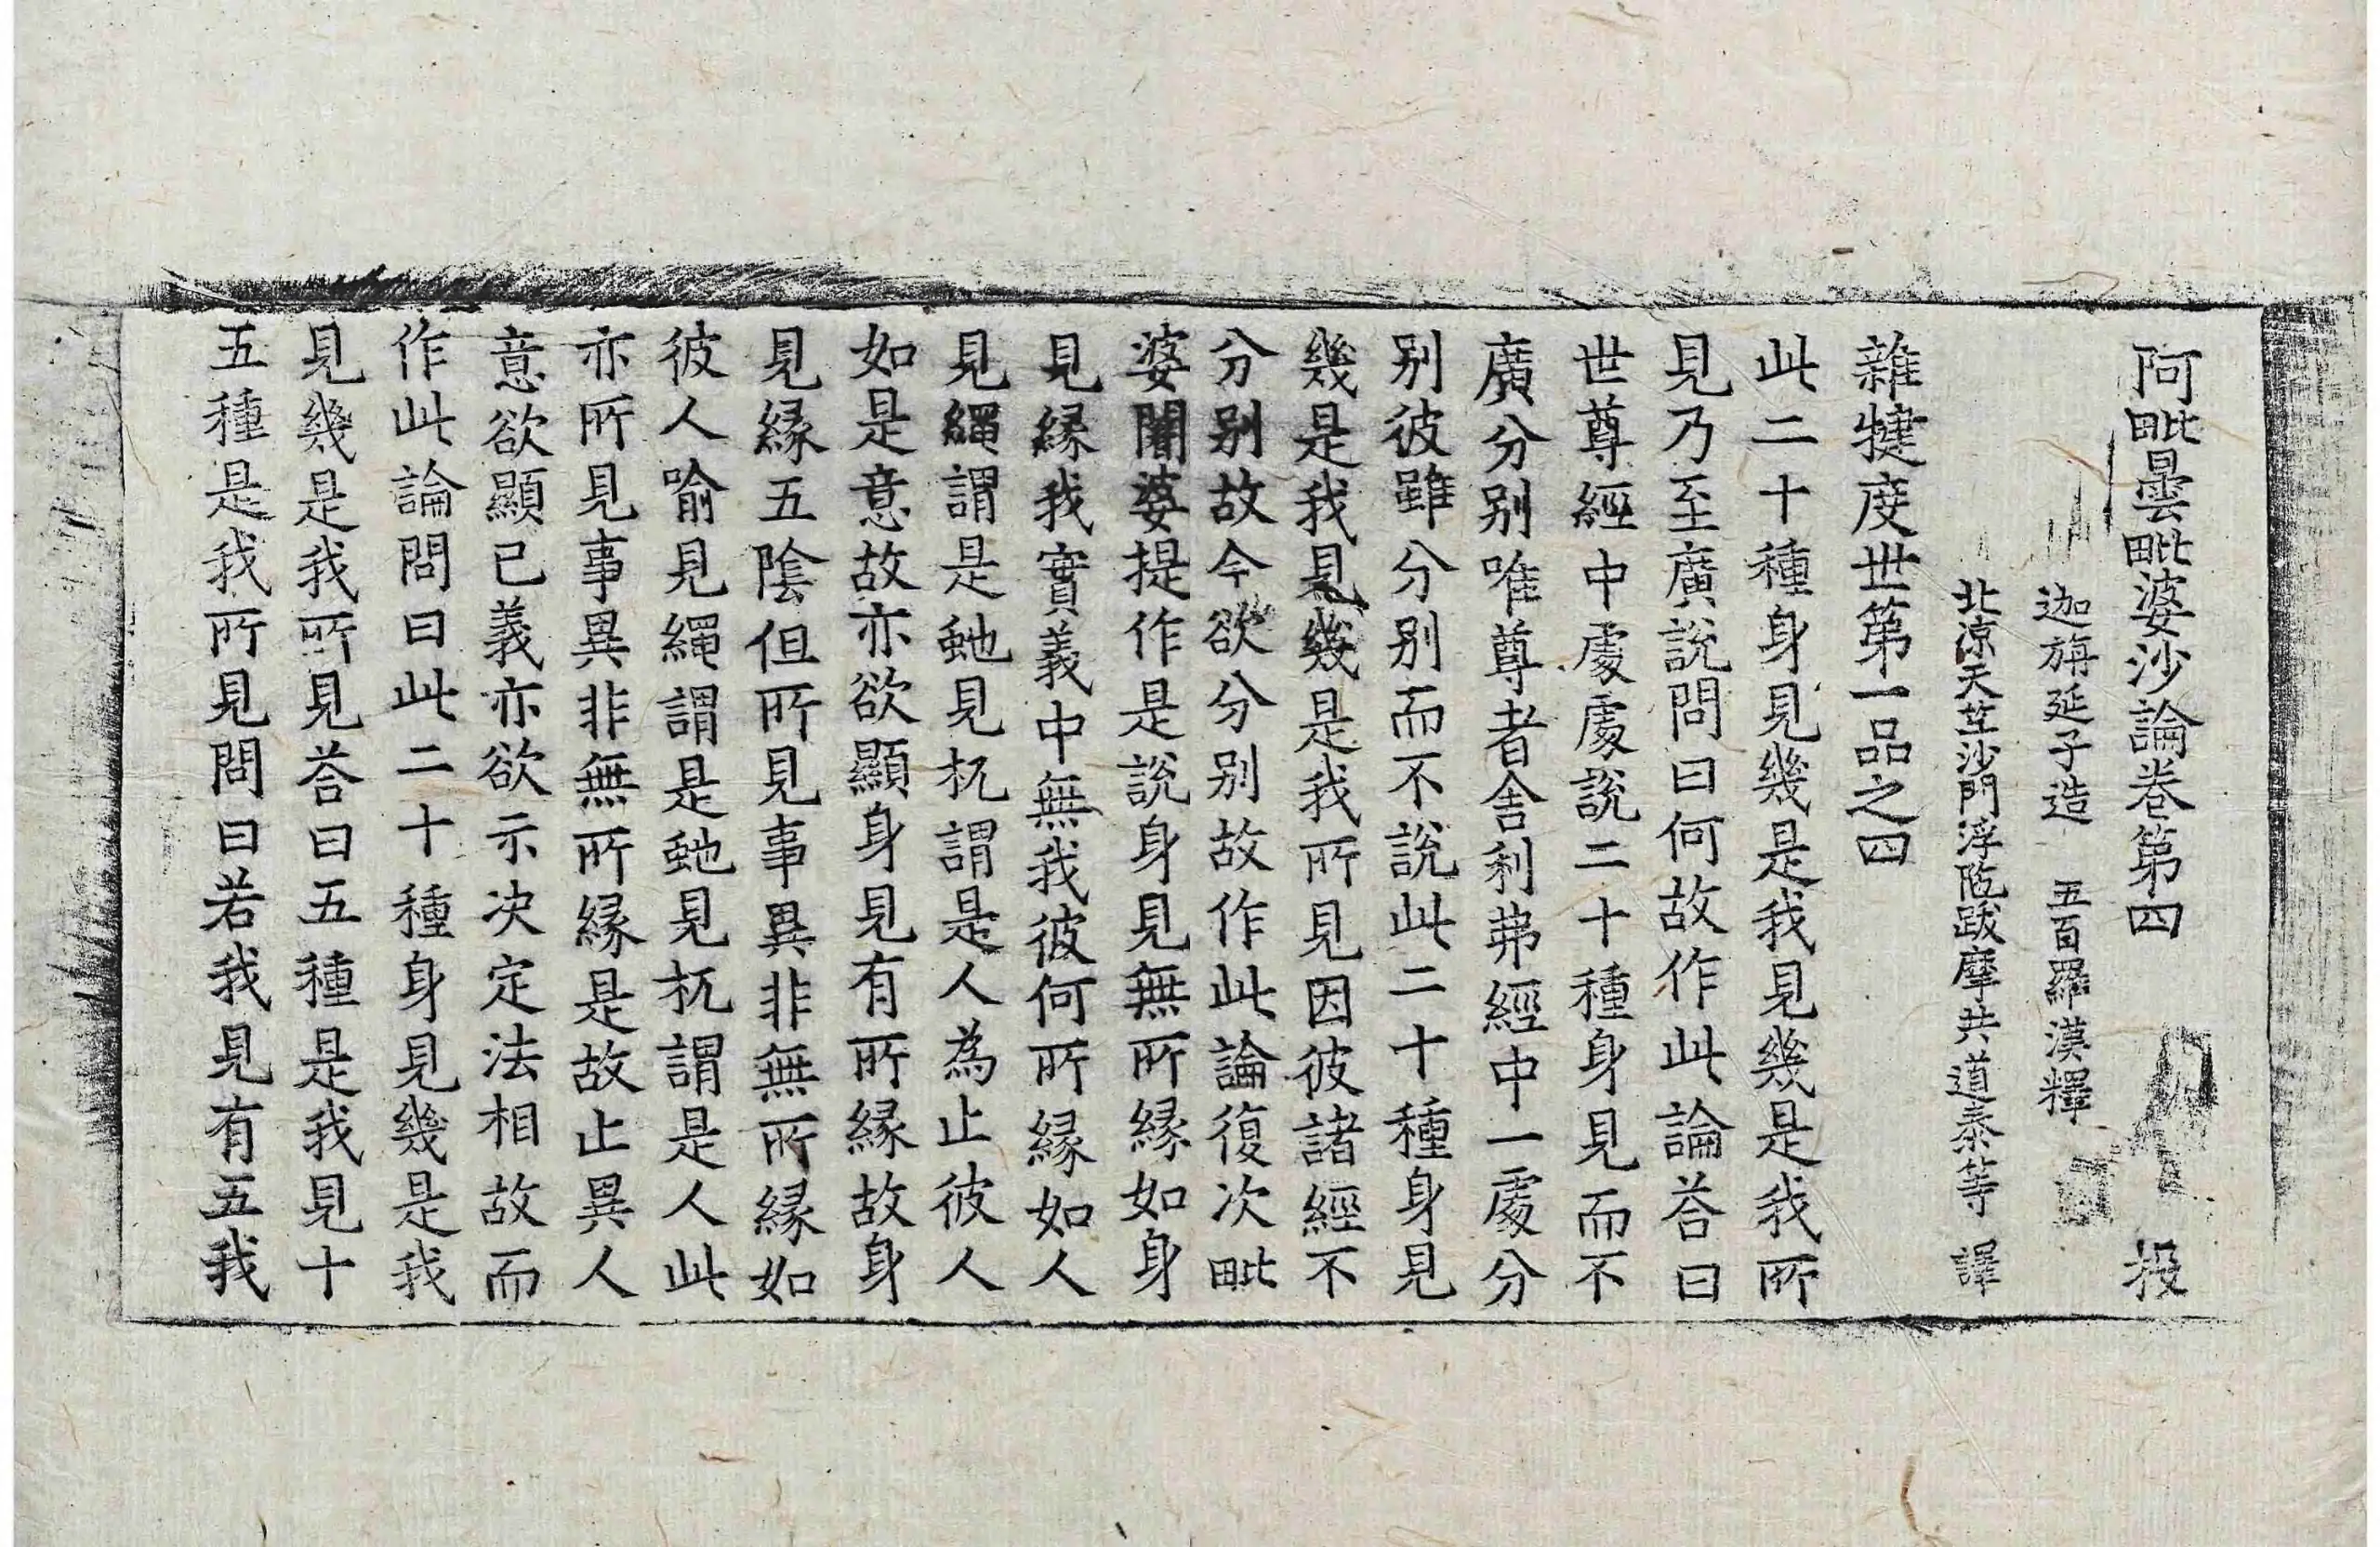 阿毗曇毗婆沙論卷第四 投
迦旃延子造 五百羅漢釋
北涼天竺沙門浮陁跋摩共道泰等 譯
雜犍度世第一品之四
此二十種身見幾是我見幾是我所
見乃至廣說問曰何故作此論荅曰
世尊經中處處說二十種身見而不
廣分別唯尊者舍利弗經中一處分
別彼雖分別而不說此二十種身見
幾是我見幾是我所見因彼諸經不
分別故今欲分別故作此論復次毗
婆闍婆提作是說身見無所緣如身
見緣我實義中無我彼何所緣如人
見繩謂是虵見杌謂是人為止彼人
如是意故亦欲顯身見有所緣故身
見緣五陰但所見事異非無所緣如
彼人喻見繩謂是虵見杌謂是人此
亦所見事異非無所緣是故止異人
意欲顯已義亦欲示決定法相故而
作此論問曰此二十種身見幾是我
見幾是我所見荅曰五種是我見十
五種是我所見問曰若我見有五我